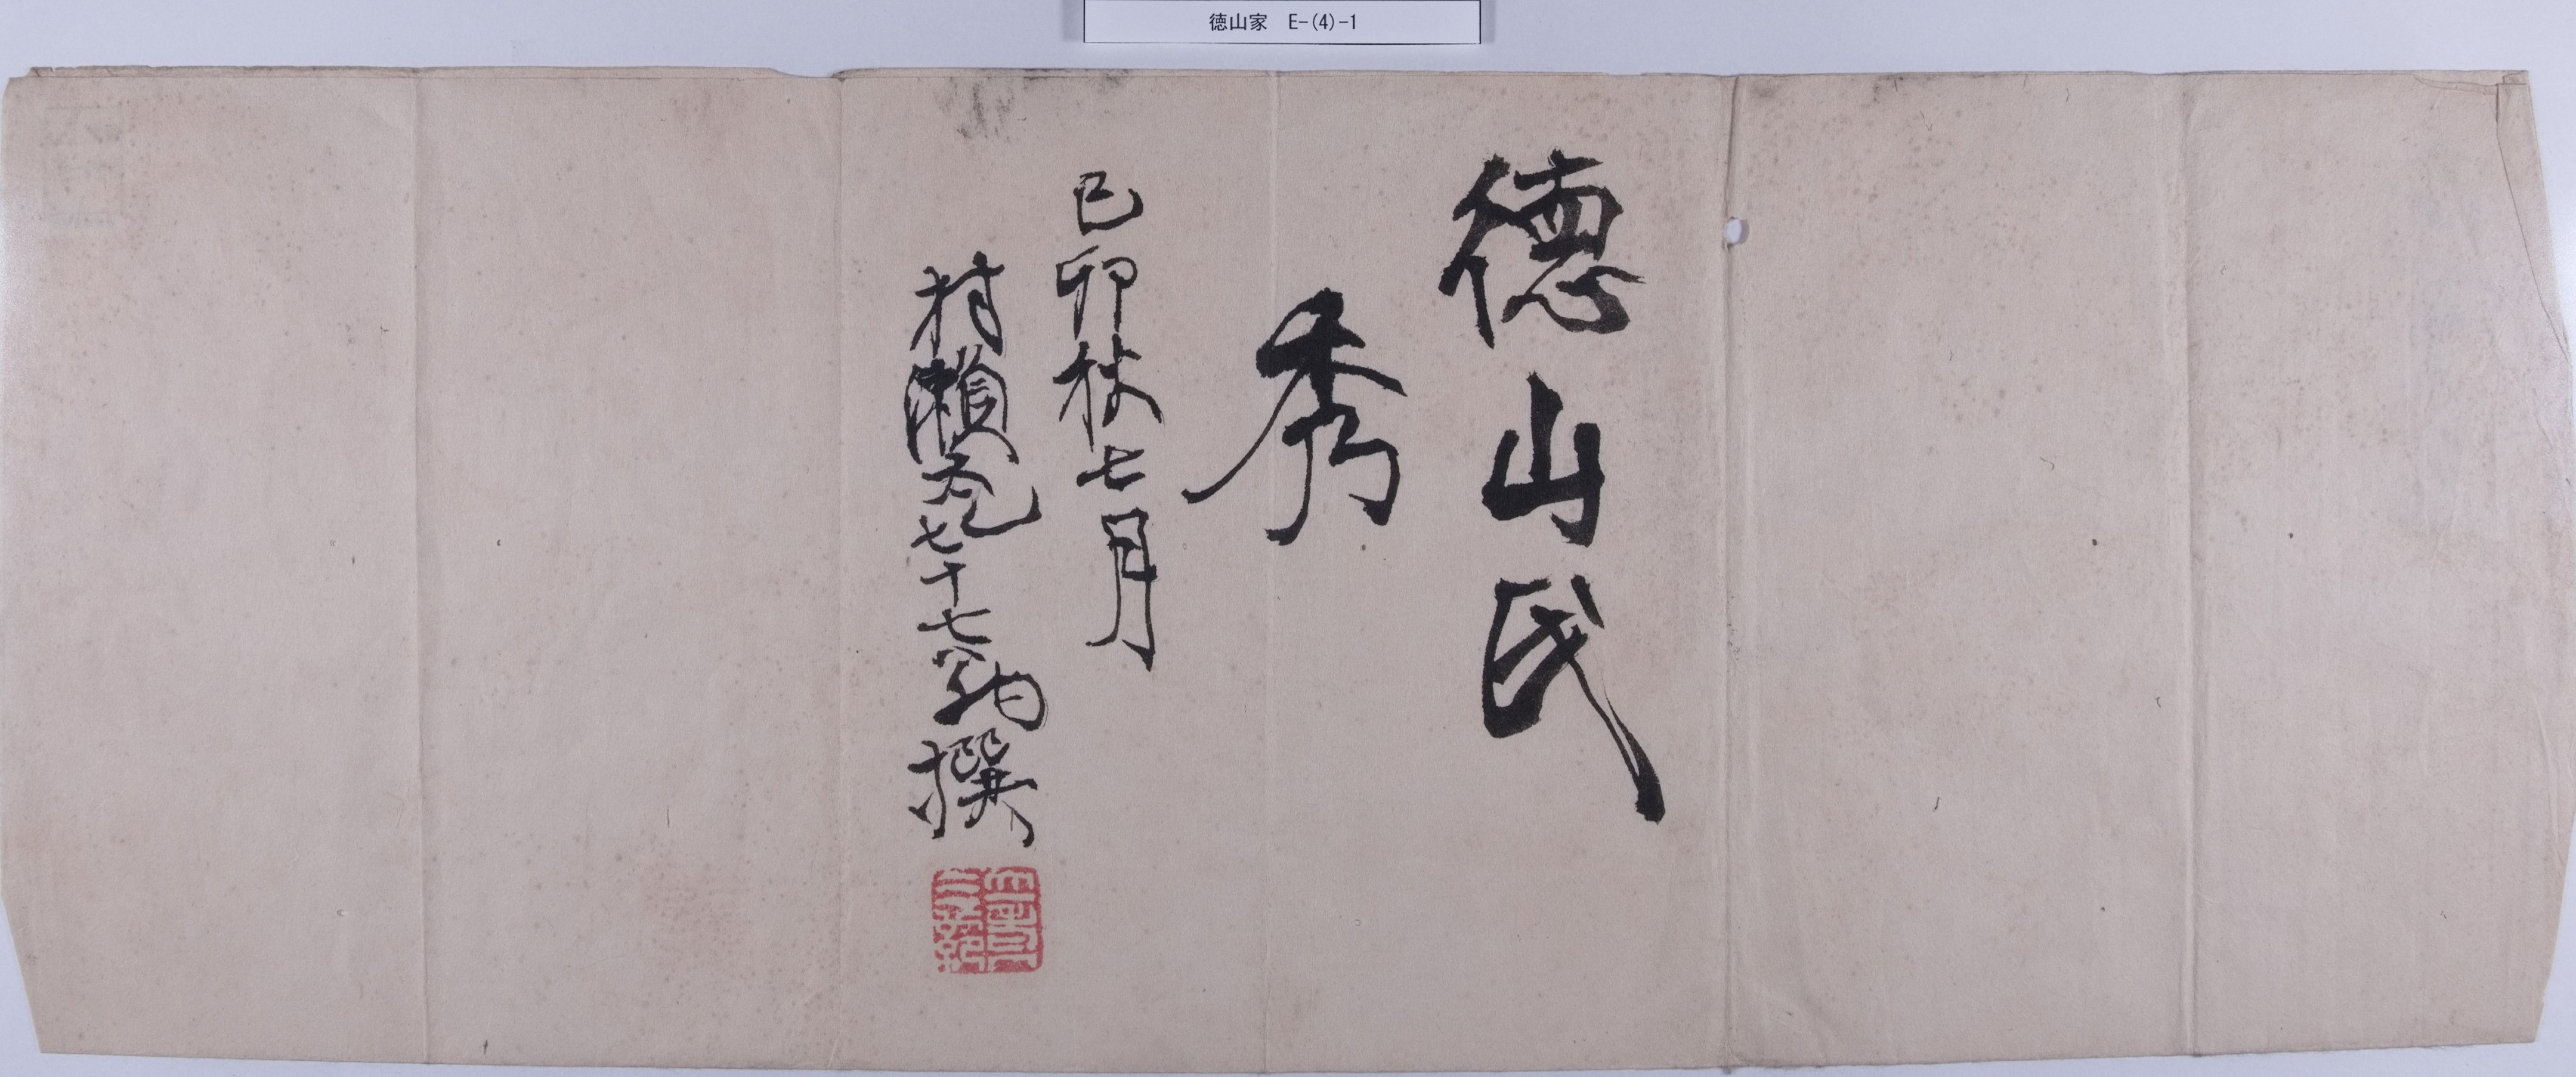 徳山家 E-(4)-1
德山氏
秀
己卯秋七月
村瀬九七十七翁撰